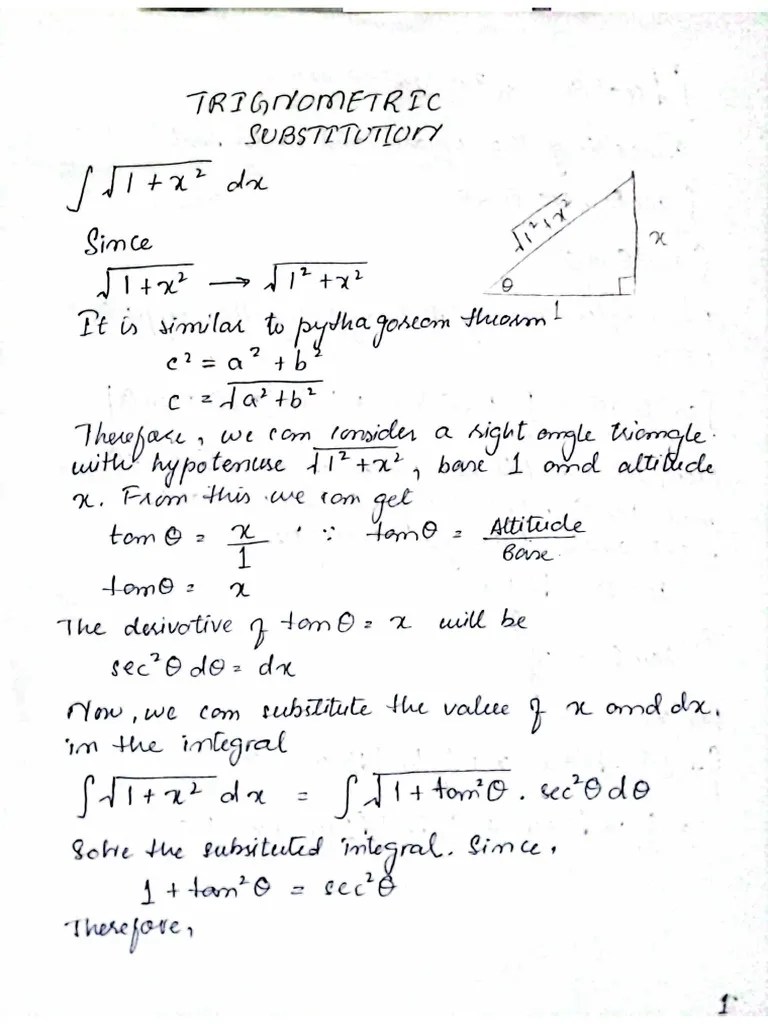 TRIGNOMETRIC
SUBSTITUTION
∫ √(1 + x²) dx
√(1²+x²)
x
θ
1
Since
√(1+x²) → √(1² + x²)
It is similar to pythagoream theorm
c² = a² + b²
c = √(a²+b²)
Therefore, we can consider a right angle triangle
with hypotenuse √(1²+x²), base 1 and altitude
x. From this we can get
tan θ = x/1 ∵ tanθ = Altitude/Base
tanθ = x
The derivative of tanθ = x will be
sec²θ dθ = dx
Now, we can substitute the value of x and dx.
in the integral
∫ √(1 + x²) dx = ∫ √(1 + tan²θ) . sec²θ dθ
Solve the subsituted integral. Since,
1 + tan²θ = sec²θ
Therefore,
1